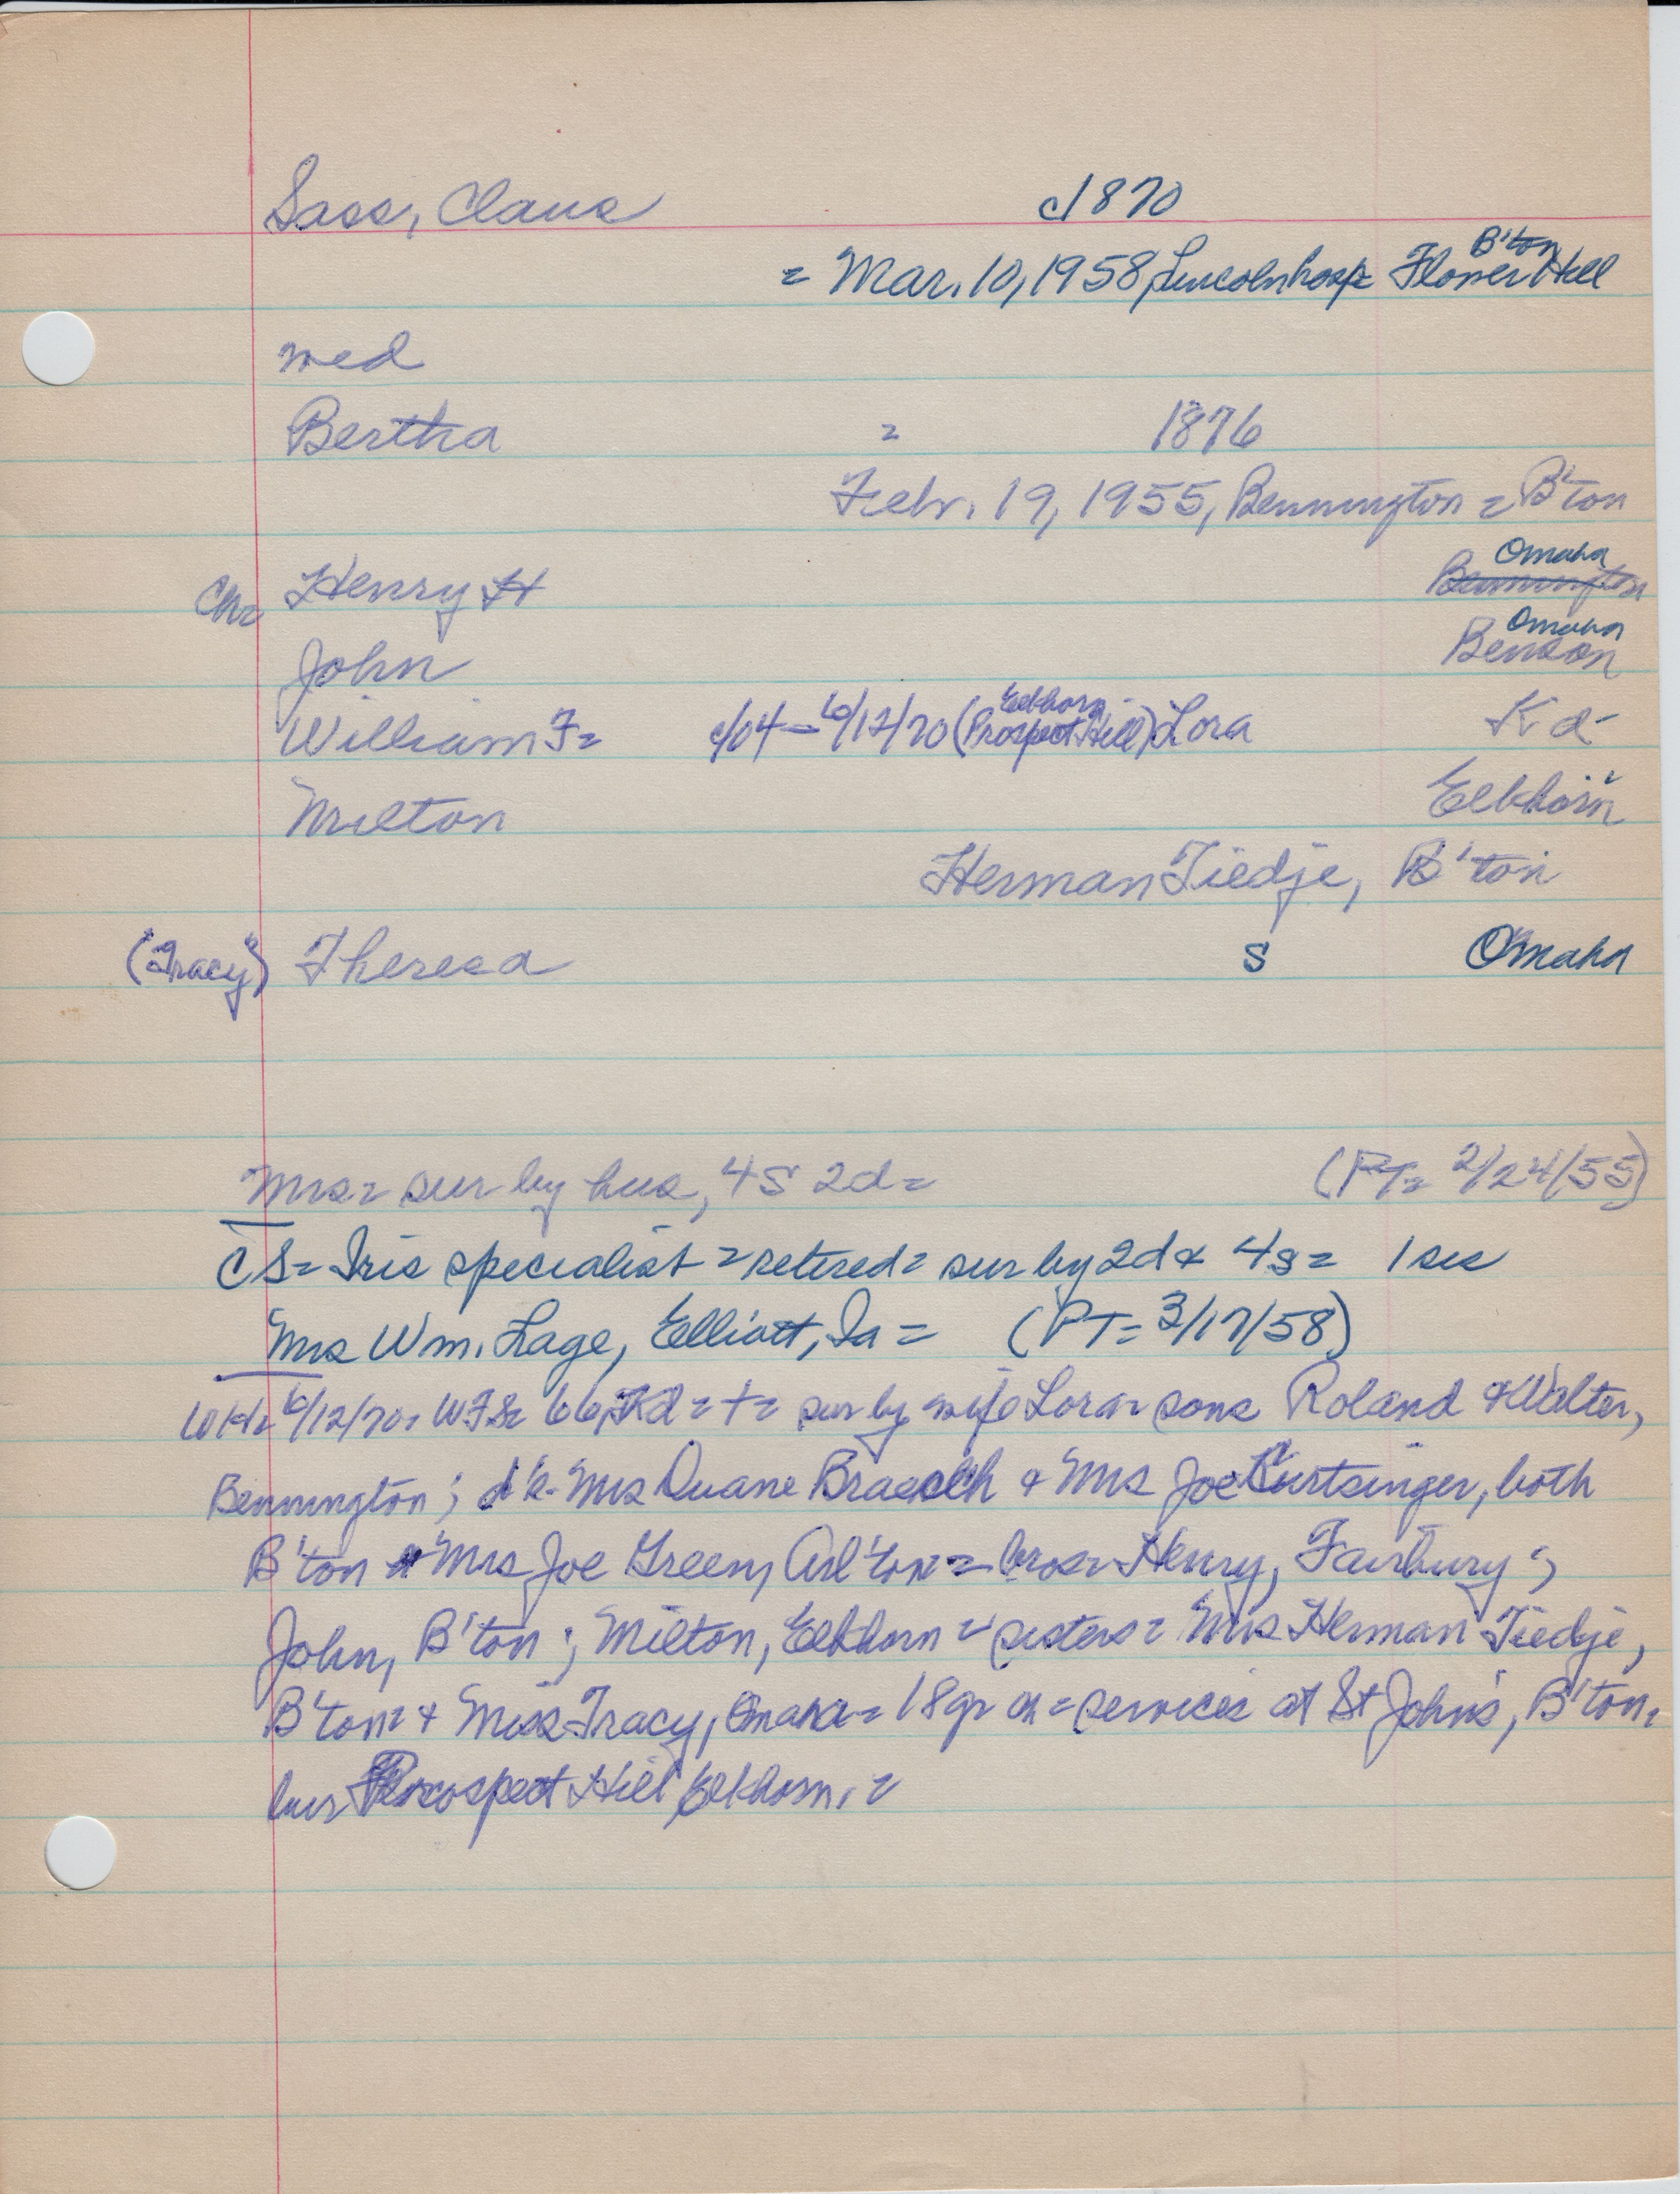 Sass, Claus c/1870
B'ton
= Mar. 10, 1958, Lincoln hosp = Flower Hill
wed
Bertha = 1876
Febr. 19, 1955, Bennington = B'ton
Omaha
Ch= Henry H Bennington
Omaha
John Benson
Elkhorn
William F= c/04 – 6/12/70 (Prospect Hill) Lora Kd-
Milton Elkhorn
Herman Tiedje, B'ton
("Tracy") Theresa S Omaha
Mrs= sur by hus, 4S 2d= (PT= 2/24/55)
CS= Iris specialist = retired = sur by 2d & 4s= 1 sis
Mrs Wm. Lage, Elliott, Ia = (PT= 3/17/58)
6/12/70= WFS= 66, Kd = + = sur by wife Lora= sons Roland & Walter,
Bennington; d's- Mrs Duane & Mrs Joe Kurtsinger, both
B'ton & Mrs Joe Green, Arl'ton = bros= Henry, Fairbury;
John, B'ton; Milton, Elkhorn = sisters = Mrs Herman Tiedje,
B'ton= & Miss Tracy, Omaha = 18 gr ch = services at St John's, B'ton.
bur Prospect Hill Elkhorn. =